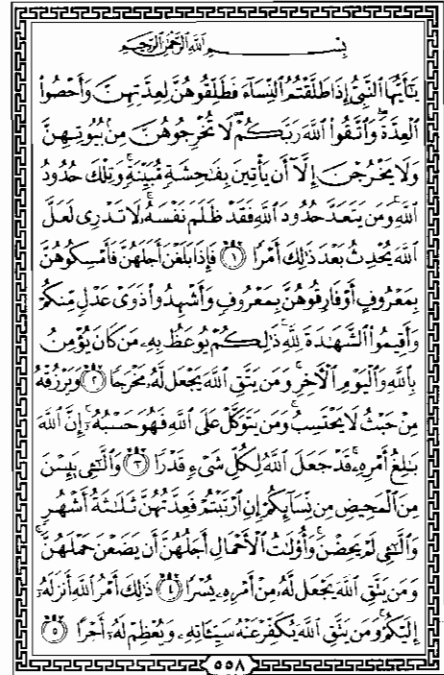 بِسْمِ اللَّهِ الرَّحْمَٰنِ الرَّحِيمِ
يَٰٓأَيُّهَا ٱلنَّبِىُّ إِذَا طَلَّقْتُمُ ٱلنِّسَآءَ فَطَلِّقُوهُنَّ لِعِدَّتِهِنَّ وَأَحْصُوا۟
ٱلْعِدَّةَ ۖ وَٱتَّقُوا۟ ٱللَّهَ رَبَّكُمْ ۖ لَا تُخْرِجُوهُنَّ مِنۢ بُيُوتِهِنَّ
وَلَا يَخْرُجْنَ إِلَّآ أَن يَأْتِينَ بِفَٰحِشَةٍ مُّبَيِّنَةٍ ۚ وَتِلْكَ حُدُودُ
ٱللَّهِ ۚ وَمَن يَتَعَدَّ حُدُودَ ٱللَّهِ فَقَدْ ظَلَمَ نَفْسَهُۥ ۚ لَا تَدْرِى لَعَلَّ
ٱللَّهَ يُحْدِثُ بَعْدَ ذَٰلِكَ أَمْرًا ١ فَإِذَا بَلَغْنَ أَجَلَهُنَّ فَأَمْسِكُوهُنَّ
بِمَعْرُوفٍ أَوْ فَارِقُوهُنَّ بِمَعْرُوفٍ وَأَشْهِدُوا۟ ذَوَىْ عَدْلٍ مِّنكُمْ
وَأَقِيمُوا۟ ٱلشَّهَٰدَةَ لِلَّهِ ۚ ذَٰلِكُمْ يُوعَظُ بِهِۦ مَن كَانَ يُؤْمِنُ
بِٱللَّهِ وَٱلْيَوْمِ ٱلْءَاخِرِ ۚ وَمَن يَتَّقِ ٱللَّهَ يَجْعَل لَّهُۥ مَخْرَجًا ٢ وَيَرْزُقْهُ
مِنْ حَيْثُ لَا يَحْتَسِبُ ۚ وَمَن يَتَوَكَّلْ عَلَى ٱللَّهِ فَهُوَ حَسْبُهُۥٓ ۚ إِنَّ ٱللَّهَ
بَٰلِغُ أَمْرِهِۦ ۚ قَدْ جَعَلَ ٱللَّهُ لِكُلِّ شَىْءٍ قَدْرًا ٣ وَٱلَّٰٓـِٔى يَئِسْنَ
مِنَ ٱلْمَحِيضِ مِن نِّسَآئِكُمْ إِنِ ٱرْتَبْتُمْ فَعِدَّتُهُنَّ ثَلَٰثَةُ أَشْهُرٍ
وَٱلَّٰٓـِٔى لَمْ يَحِضْنَ ۚ وَأُو۟لَٰتُ ٱلْأَحْمَالِ أَجَلُهُنَّ أَن يَضَعْنَ حَمْلَهُنَّ ۚ
وَمَن يَتَّقِ ٱللَّهَ يَجْعَل لَّهُۥ مِنْ أَمْرِهِۦ يُسْرًا ٤ ذَٰلِكَ أَمْرُ ٱللَّهِ أَنزَلَهُۥٓ
إِلَيْكُمْ ۚ وَمَن يَتَّقِ ٱللَّهَ يُكَفِّرْ عَنْهُ سَيِّـَٔاتِهِۦ وَيُعْظِمْ لَهُۥٓ أَجْرًا ٥
٥٥٨